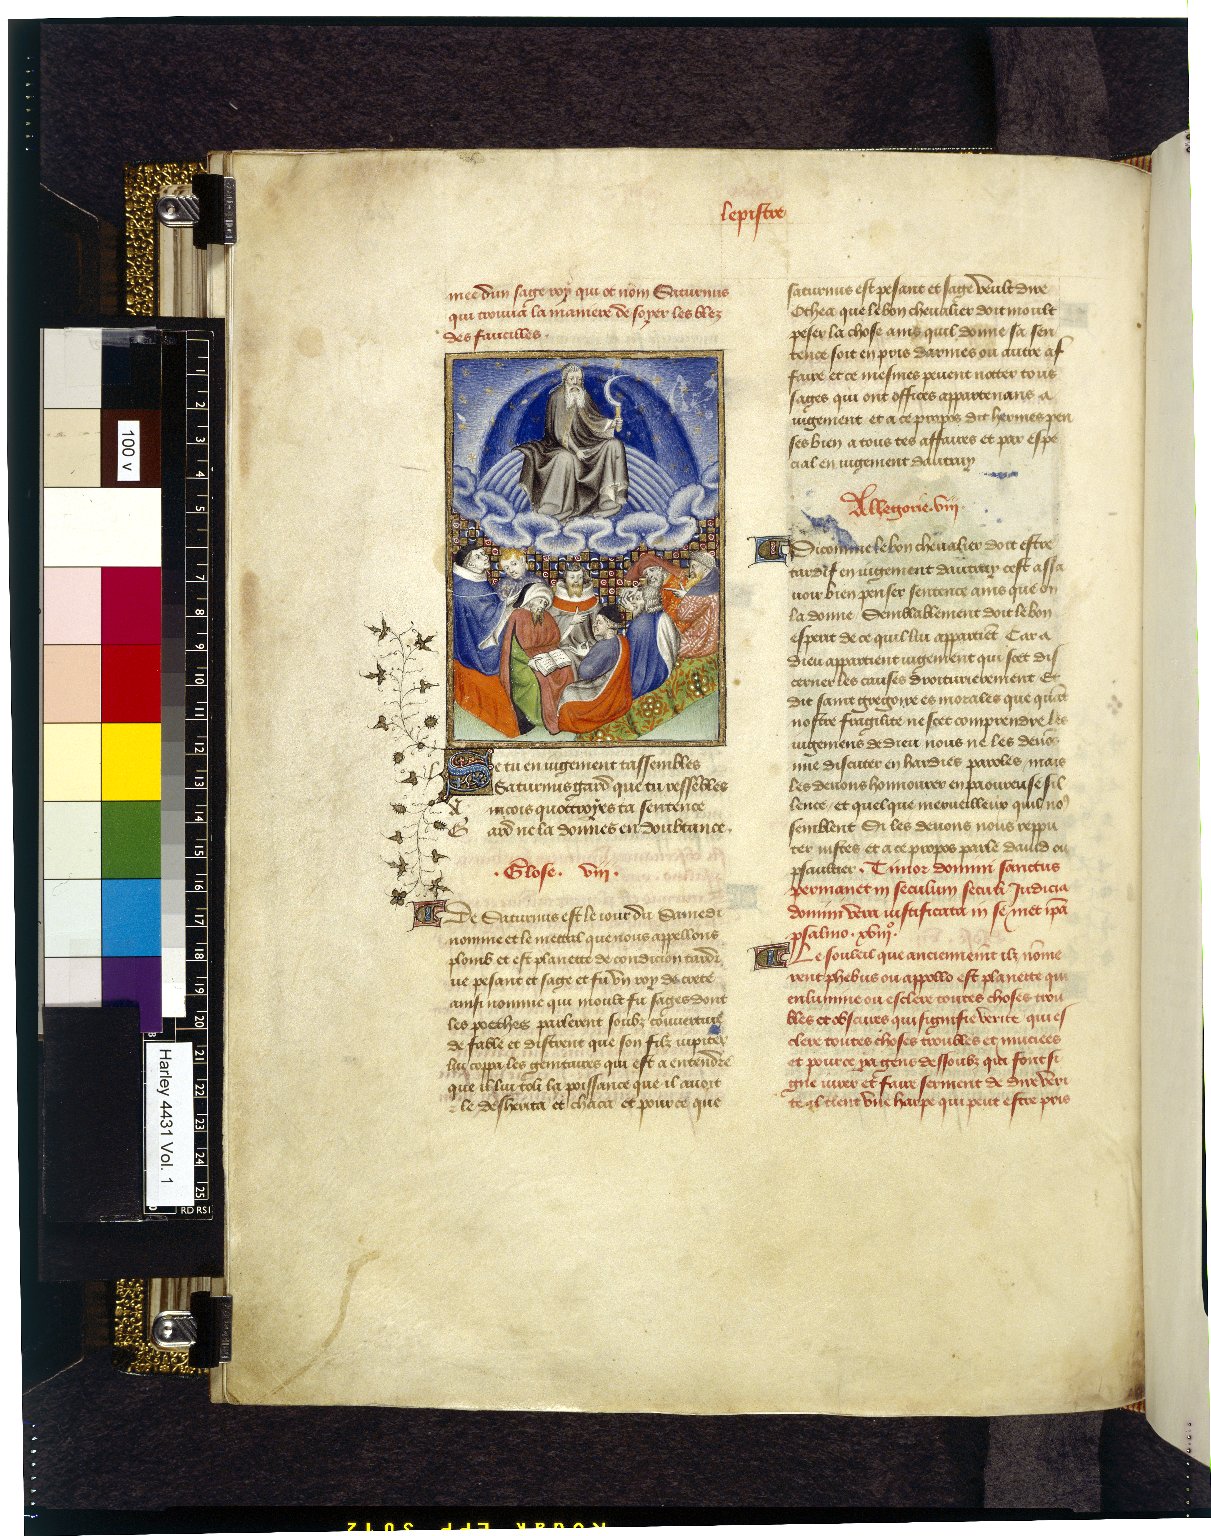 lepistre
mee dun sage roy qui ot nom Saturnus
qui trouua la maniere de soyer les blez
des faucilles.
Se tu en iugement tassembles
Saturnus gard que tu ressembles
Aincois quottroyes ta sentence
Gard ne la donnes en doubtance.
Glose. viii.
De Saturnus est le iour du Samedi
nomme et le mettal que nous appellons
plomb et est planette de condicion tardi
ue pesant et sage et fu vn roy de crete
ainsi nomme qui moult fu sages dont
les poethes parlerent soubz couuerture
de fable et distrent que son filz iupiter
lui coppa les genitaires qui est a entendre
que il lui toli la poissance que il auoit
le desherita et chaca et pour ce que
saturnus est pesant et sage veult dire
Othea que le bon cheualier doit moult
peser la chose ains quil donne sa sen
tence soit en pris darmes ou autre af
faire et ce mesmes peuent notter tous
sages qui ont offices appartenans a
iugement et a ce propos dit hermes pen
ses bien a tous tes affaires et par espe
cial en iugement dautruy
Allegorie. viii.
Si comme le bon cheualier doit estre
tardif en iugement dautruy cest assa
uoir bien penser sentence ains que on
la donne Semblablement doit le bon
esperit de ce quil lui appartient Car a
dieu appartient iugement qui scet dis
cerner les causes droiturierement Et
dit saint gregoire es morales que quant
nostre fragilite ne scet comprendre les
iugemens de dieu nous ne les deuons
mie discuter en hardies paroles mais
les deuons honnourer en paoureuse sil
lence et quelque merueilleux quilz no9
semblent Si les deuons nous reppu
ter iustes et a ce propos parle dauid ou
psaultier. Timor domini sanctus
permanet in seculum seculi Judicia
domini vera iustificata in semet ipa
psalmo. xviii°.
Le souleil que anciennement ilz nome
rent phebus ou appollo est planette qui
enlumine ou esclere toutes choses trou
bles et obscures qui signifie verite qui es
clere toutes choses troubles et muciees
et pour ce ya gens dessoubz qui font si
gne iurer et faire serment de dire veri
te il tient vne harpe qui peut estre pris
100 v
Harley 4431 Vol. 1
1
2
3
4
5
7
8
9
10
11
12
13
14
15
16
17
18
19
20
21
22
23
24
25
RD RSI
KODAK EPP 5012